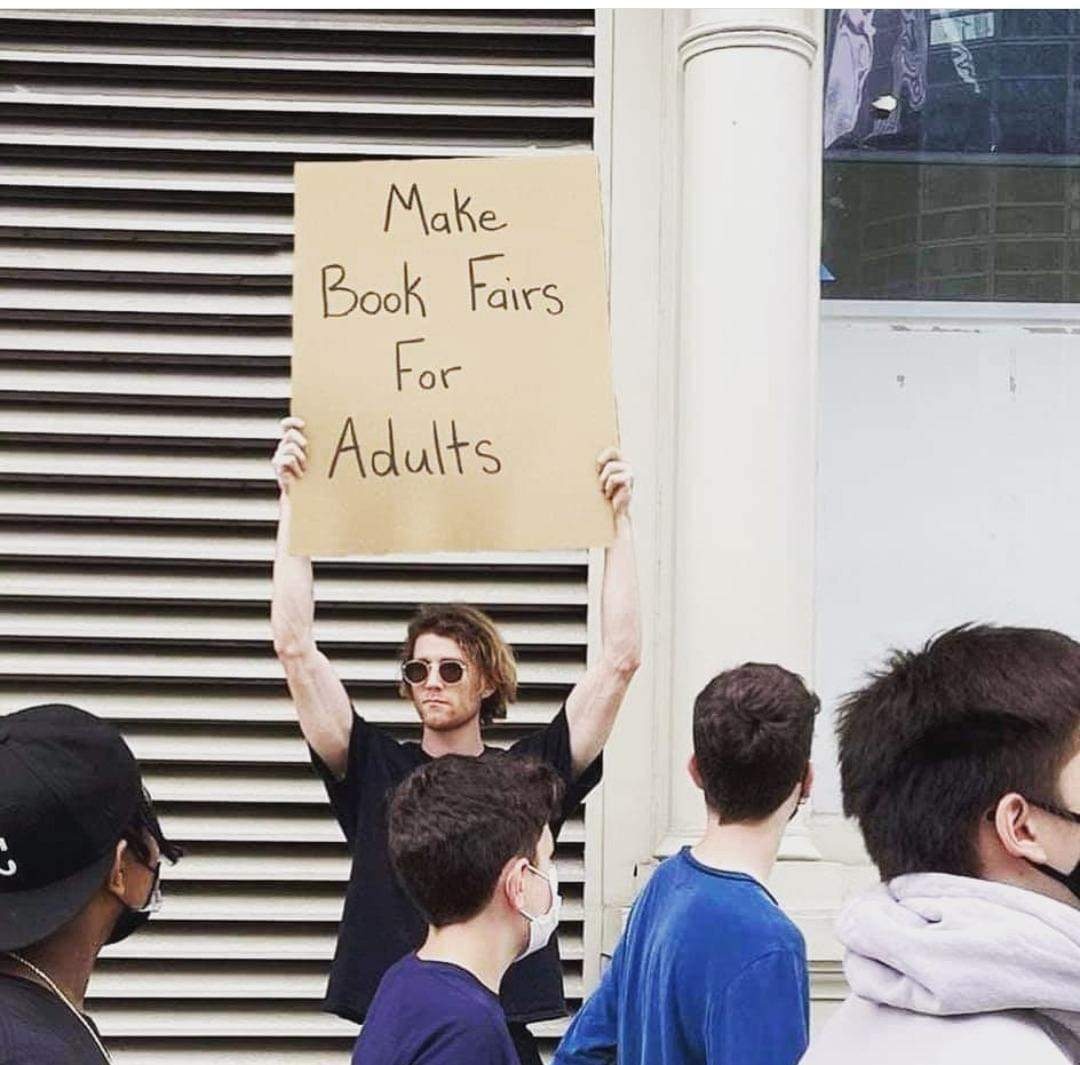 Make
Book Fairs
For
Adults